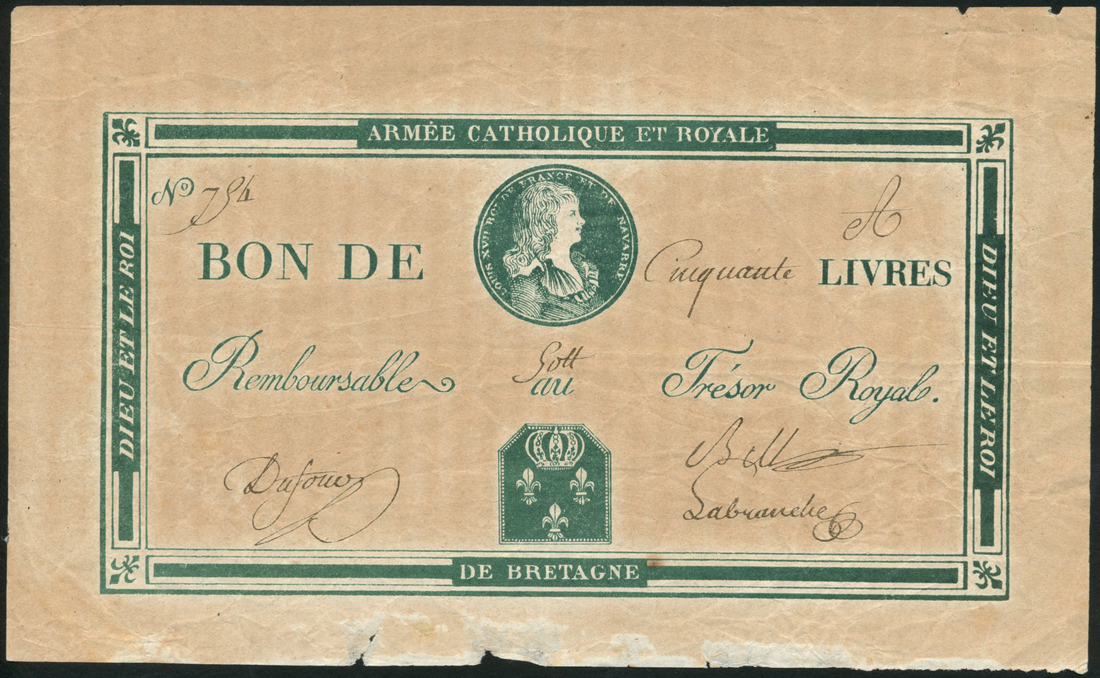 ARMÉE CATHOLIQUE ET ROYALE
No 754
A
LOUIS XVII ROI DE FRANCE ET DE NAVARRE
BON DE Cinquante LIVRES
DIEU ET LE ROI
DIEU ET LE ROI
Remboursable au Trésor Royal.
Dufour
Labranche
DE BRETAGNE